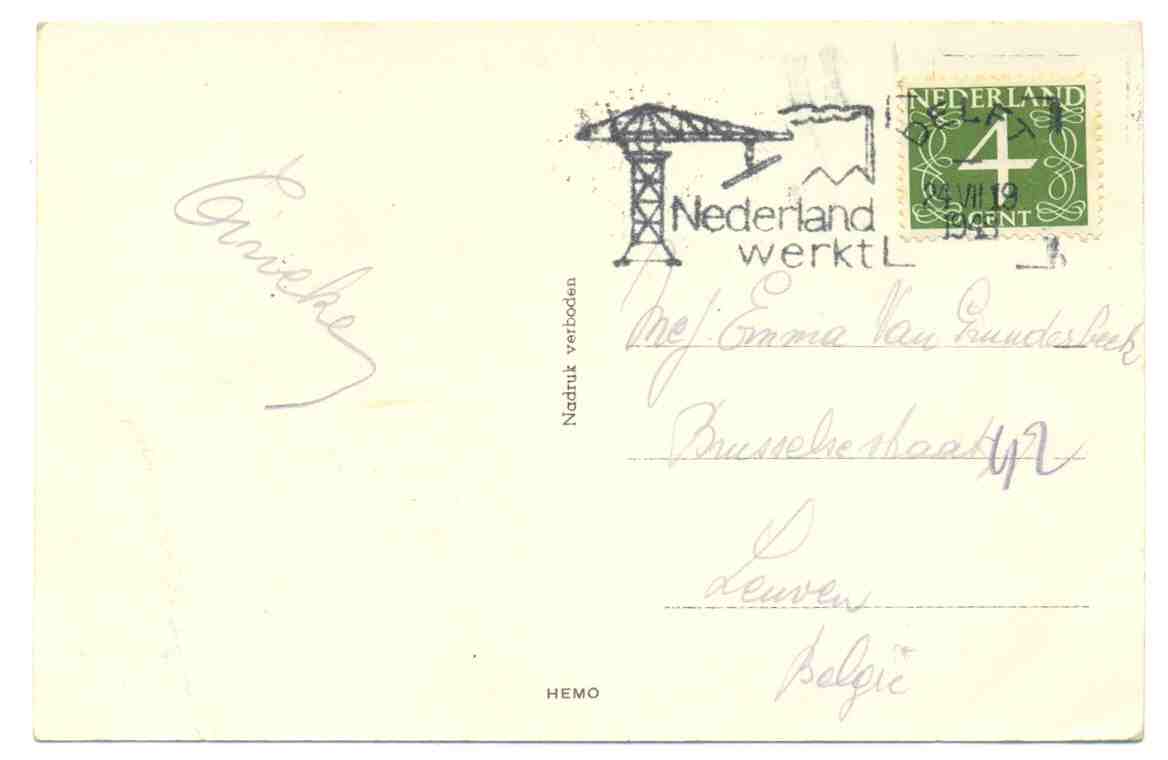 Emieke
Nadruk verboden
HEMO
NEDERLAND
4
CENT
DELFT
24 VII 19
Nederland
werkt
Mej. Emma Van Grunderbeek
Brusselsestraat 42
Leuven
België